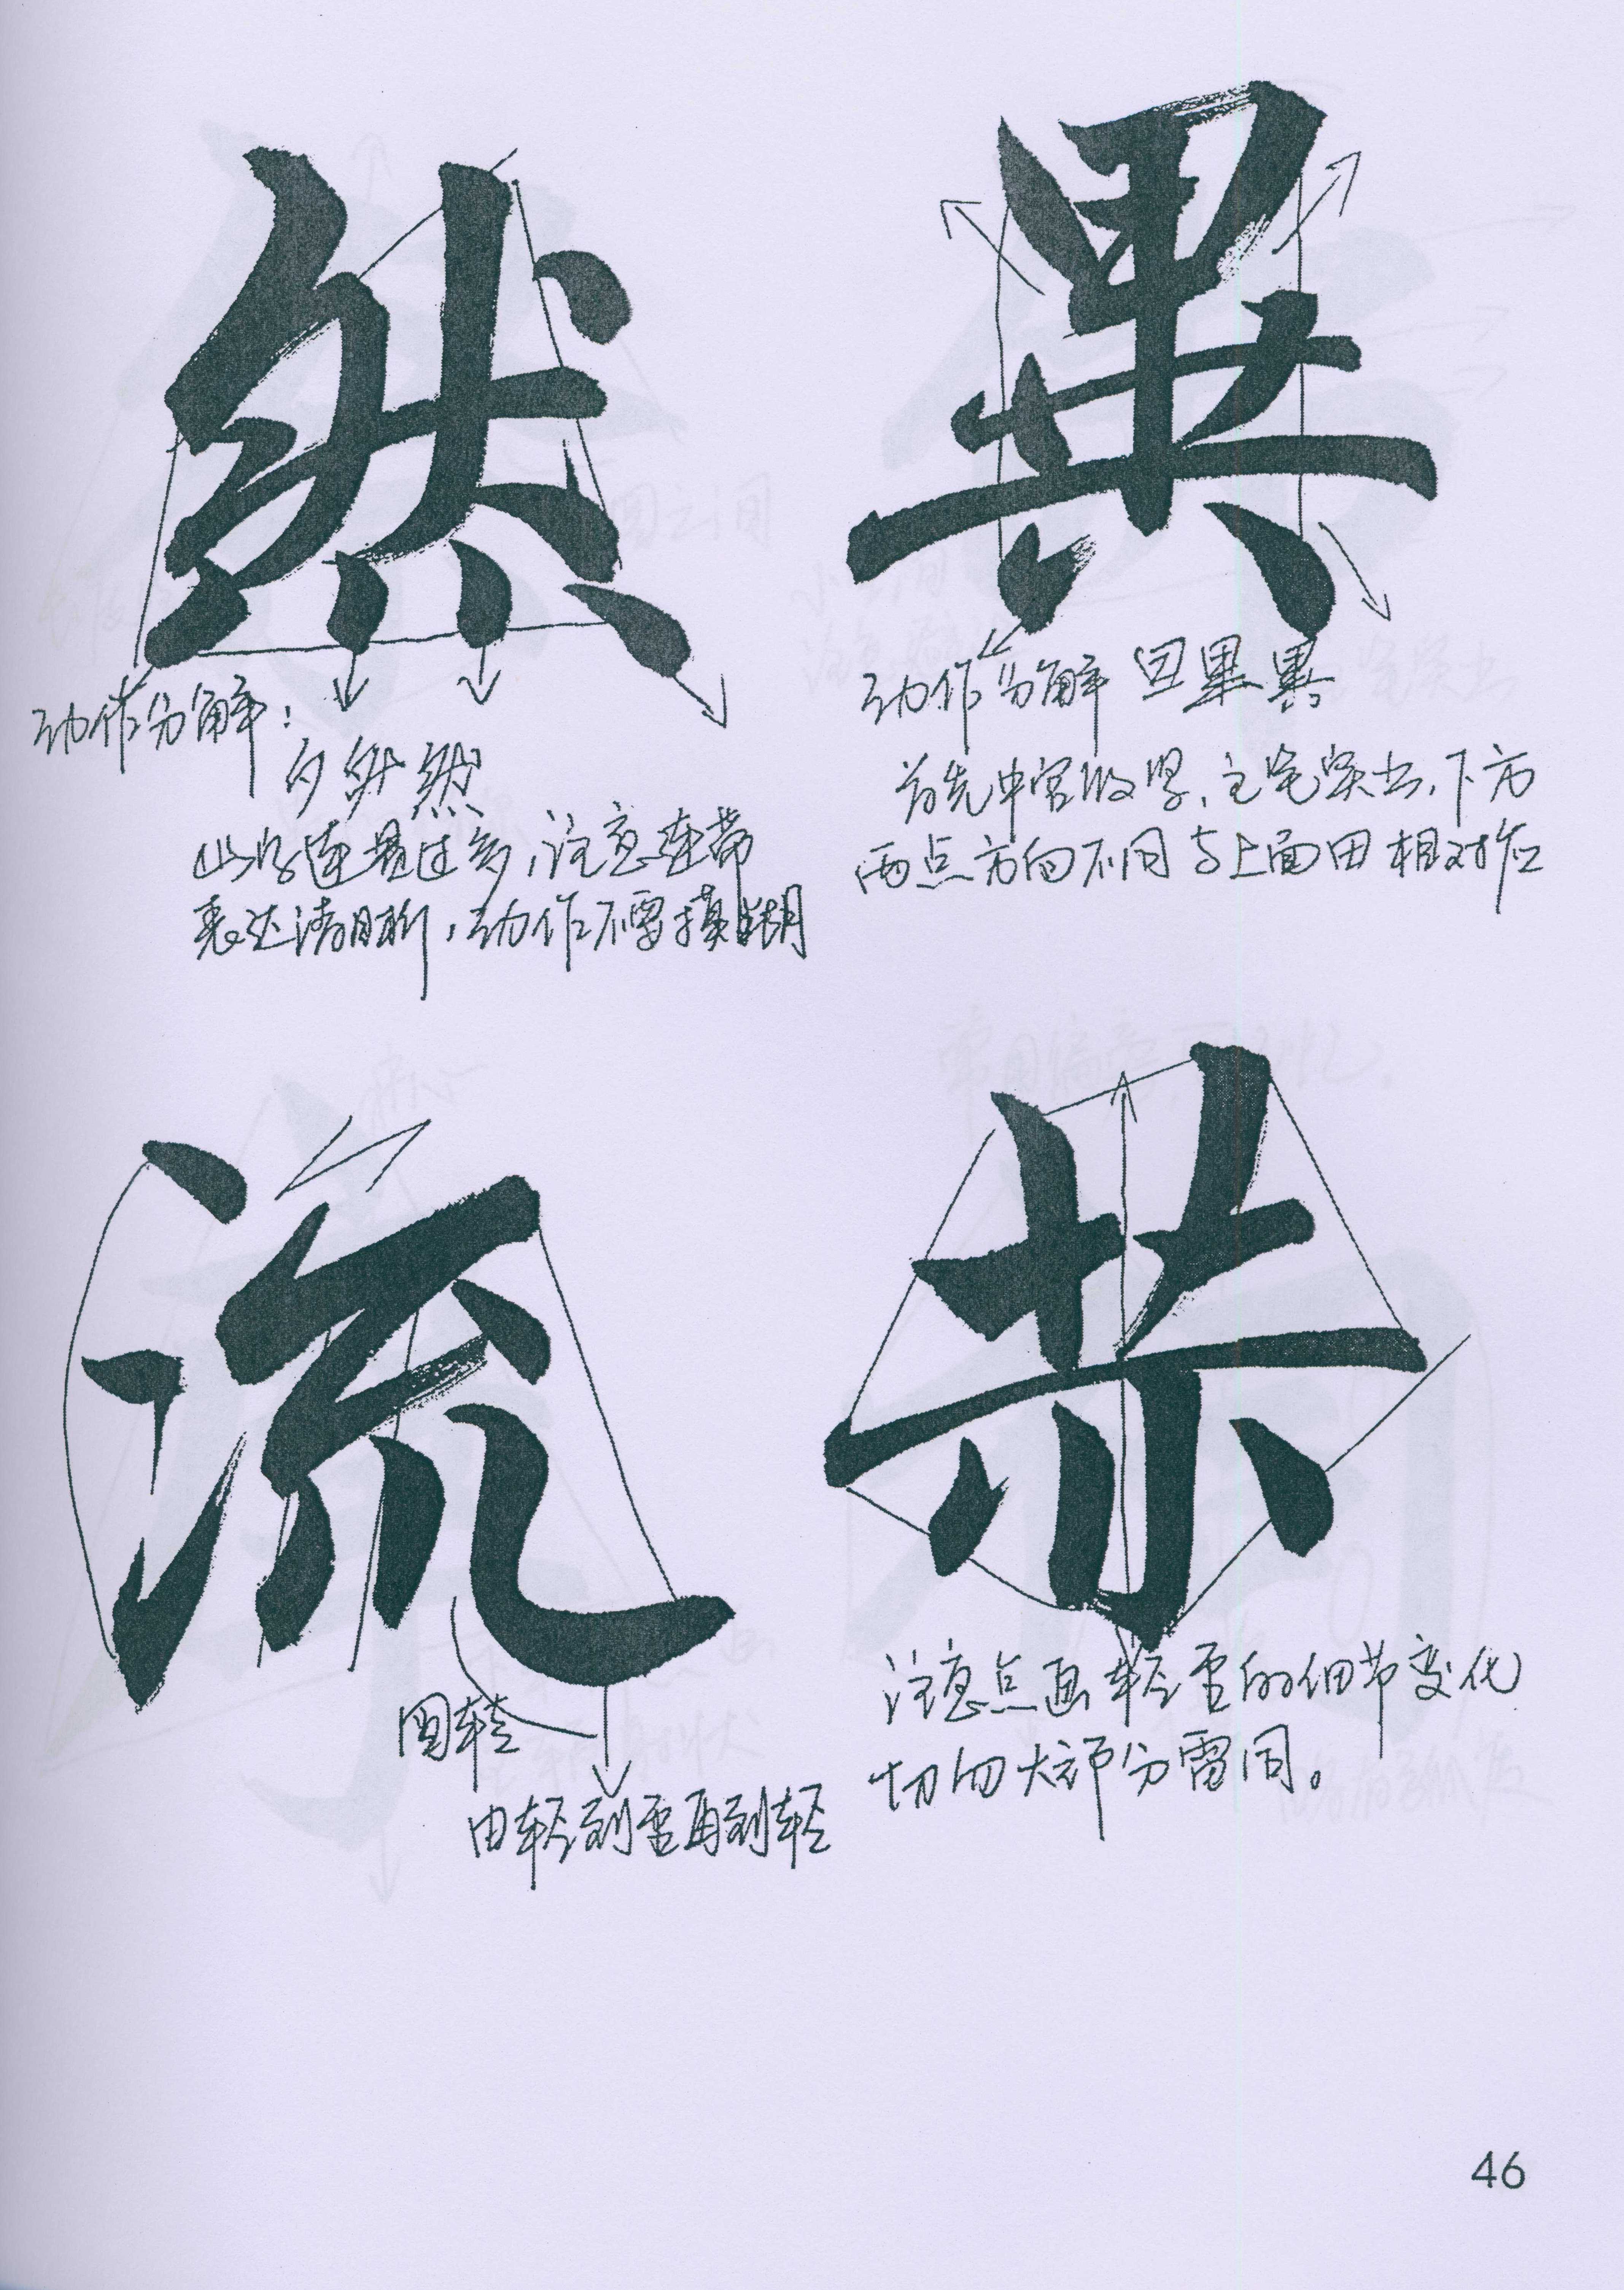 然
動作分解：
夕 然
此字连笔过多，注意连带
表达清晰，动作不要模糊
異
动作分解 田 里 異
首先中宫收紧，主笔突出，下方
两点方向不同与上面田相对应
流
圆转
由轻到重再到轻
恭
注意点画轻重的细节变化
切勿大部分雷同。
46